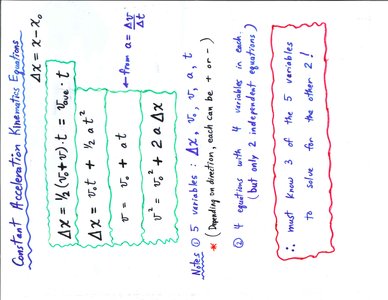 Constant Acceleration Kinematics Equations
Δx = x - x₀
Δx = ½ (v₀+v)·t = v_ave · t
Δx = v₀t + ½ at²
v = v₀ + at ← from a = Δv/Δt
v² = v₀² + 2aΔx
Notes ① 5 variables : Δx, v₀, v, a, t
* (Depending on direction, each can be + or -)
② 4 equations with 4 variables in each.
(but only 2 independent equations)
∴ must know 3 of the 5 variables
to solve for the other 2!